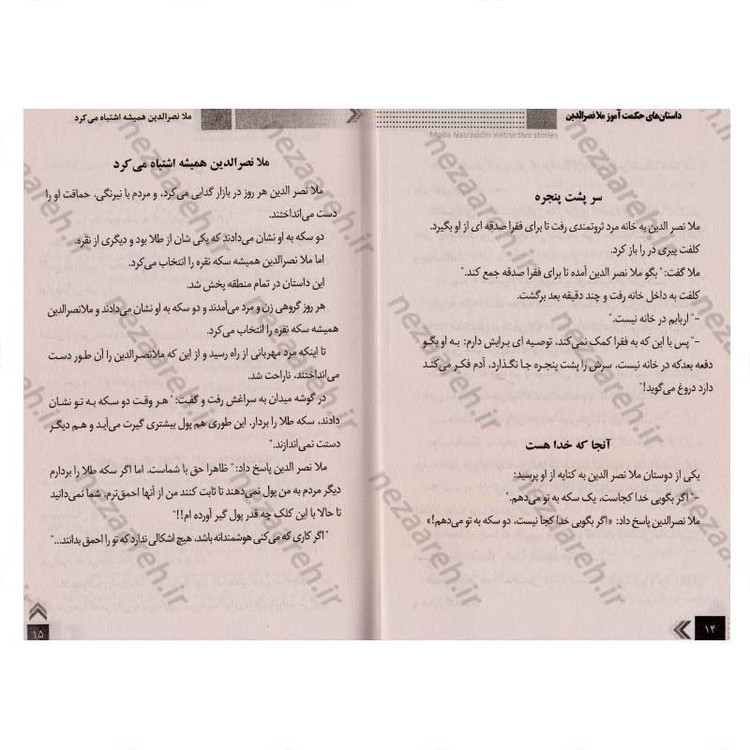 داستان‌های حکمت آموز ملا نصرالدین
Molla Nasreddin instructive stories
سر پشت پنجره
ملا نصر الدین به خانه مرد ثروتمندی رفت تا برای فقرا صدقه ای از او بگیرد.
کلفت پیری در را باز کرد.
ملا گفت: "بگو ملا نصر الدین آمده تا برای فقرا صدقه جمع کند."
کلفت به داخل خانه رفت و چند دقیقه بعد برگشت.
-"اربابم در خانه نیست."
-"پس با این که به فقرا کمک نمی‌کند، توصیه ای برایش دارم: به او بگو
دفعه بعدکه در خانه نیست، سرش را پشت پنجره جا نگذارد، آدم فکر می‌کند
دارد دروغ می‌گوید!"
آنجا که خدا هست
یکی از دوستان ملا نصر الدین به کنایه از او پرسید:
-"اگر بگویی خدا کجاست، یک سکه به تو می‌دهم."
ملا نصرالدین پاسخ داد: «اگر بگویی خدا کجا نیست، دو سکه به تو می‌دهم!»
۱۴
ملا نصرالدین همیشه اشتباه می‌کرد
ملا نصرالدین همیشه اشتباه می‌کرد
ملا نصر الدین هر روز در بازار گدایی می‌کرد، و مردم با نیرنگی، حماقت او را
دست می‌انداختند.
دو سکه به او نشان می‌دادند که یکی شان از طلا بود و دیگری از نقره.
اما ملا نصرالدین همیشه سکه نقره را انتخاب می‌کرد.
این داستان در تمام منطقه پخش شد.
هر روز گروهی زن و مرد می‌آمدند و دو سکه به او نشان می‌دادند و ملانصرالدین
همیشه سکه نقره را انتخاب می‌کرد.
تا اینکه مرد مهربانی از راه رسید و از این که ملانصرالدین را آن طور دست
می‌انداختند، ناراحت شد.
در گوشه میدان به سراغش رفت و گفت:" هر وقت دو سکه به تو نشان
دادند، سکه طلا را بردار. این طوری هم پول بیشتری گیرت می‌آید و هم دیگر
دستت نمی‌اندازند."
ملا نصر الدین پاسخ داد:" ظاهرا حق با شماست. اما اگر سکه طلا را بردارم
دیگر مردم به من پول نمی‌دهند تا ثابت کنند من از آنها احمق‌ترم. شما نمی‌دانید
تا حالا با این کلک چه قدر پول گیر آورده ام!!"
"اگر کاری که می‌کنی هوشمندانه باشد، هیچ اشکالی ندارد که تو را احمق بدانند..."
۱۵
nezaareh.ir